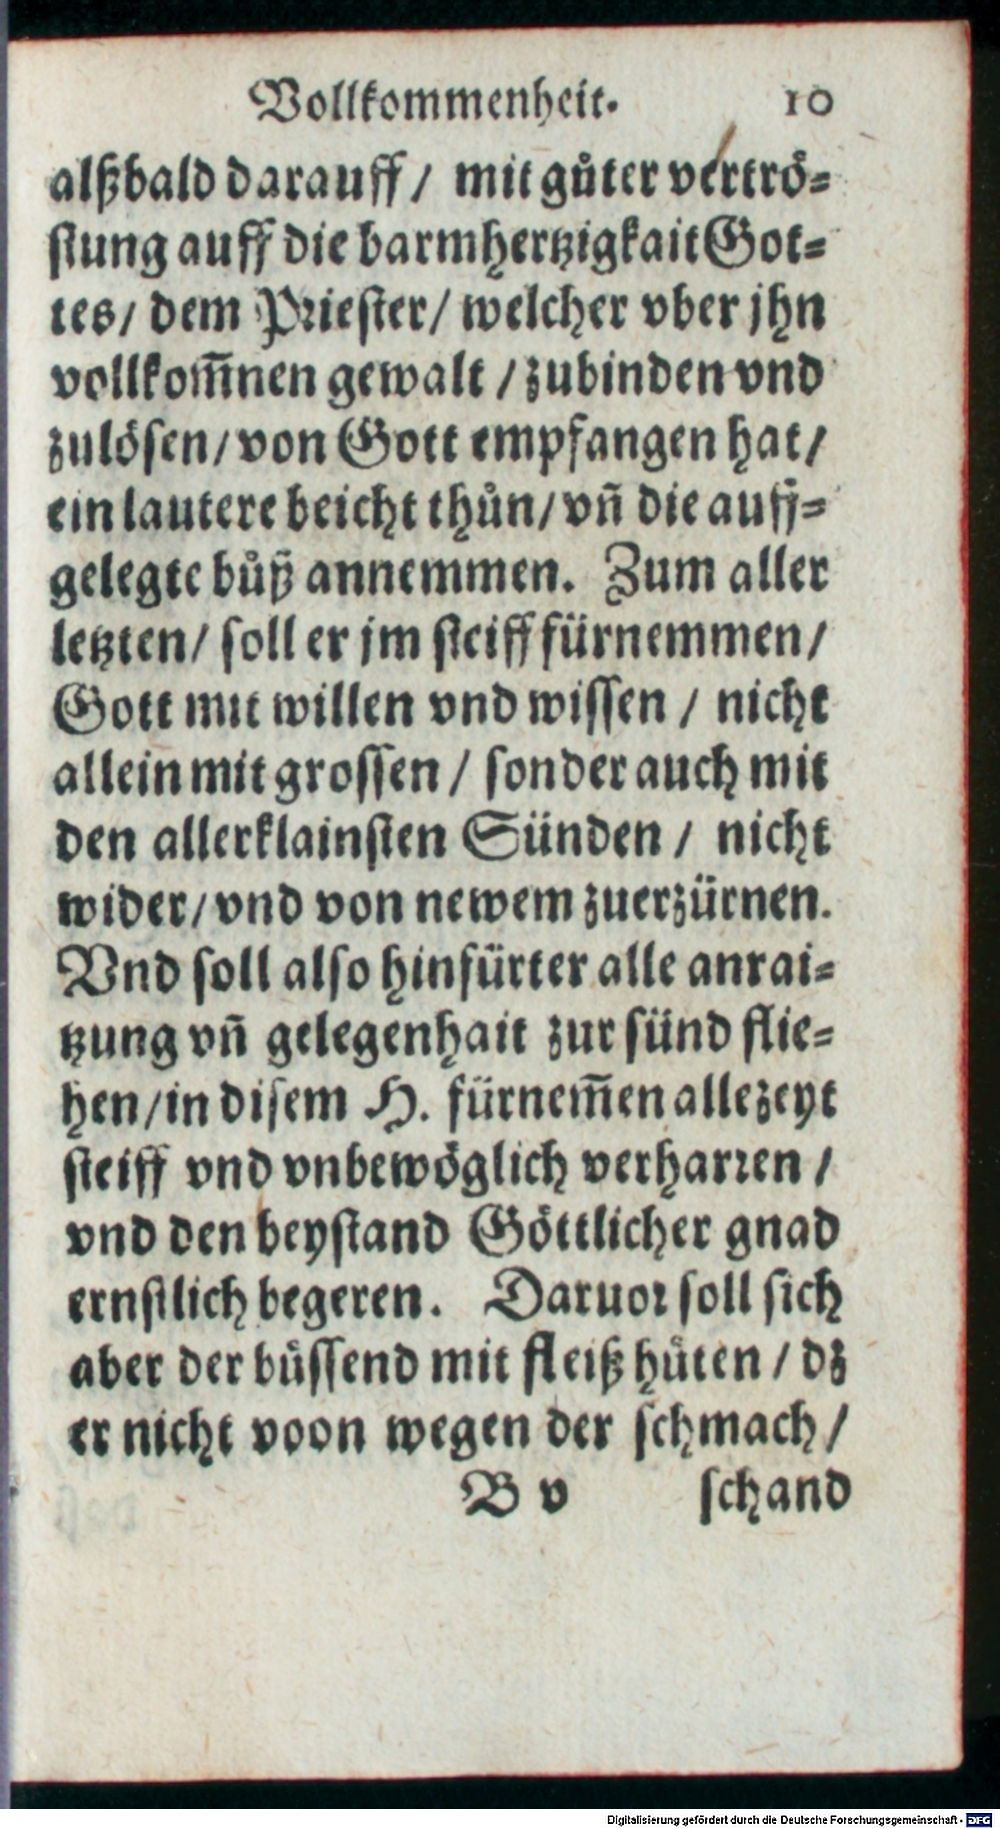 Vollkommenheit. 10
alßbald darauff / mit gůter vertrö-
stung auff die barmhertzigkait Got-
tes / dem Priester / welcher vber jhn
vollkom̃nen gewalt / zubinden vnd
zulösen / von Gott empfangen hat /
ein lautere beicht thůn / vñ die auff-
gelegte bůß annemmen. Zum aller
letzten / soll er jm steiff fürnemmen /
Gott mit willen vnd wissen / nicht
allein mit grossen / sonder auch mit
den allerklainsten Sünden / nicht
wider / vnd von newem zuerzürnen.
Vnd soll also hinfürter alle anrai-
tzung vñ gelegenhait zur sünd flie-
hen / in disem H. fürnem̃en allezeyt
steiff vnd vnbewöglich verharren /
vnd den beystand Göttlicher gnad
ernstlich begeren. Daruor soll sich
aber der büssend mit fleiß hüten / dz
er nicht voon wegen der schmach /
B v schand
Digitalisierung gefördert durch die Deutsche Forschungsgemeinschaft - DFG